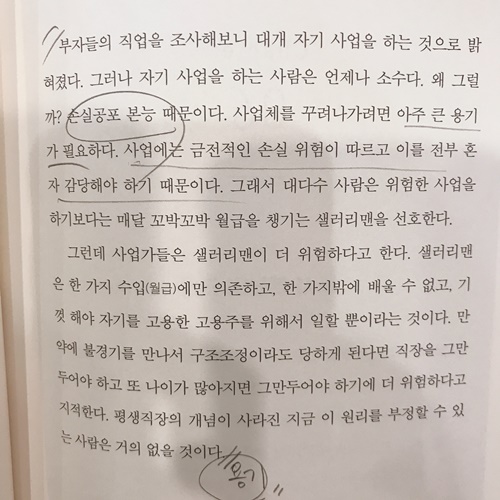 부자들의 직업을 조사해보니 대개 자기 사업을 하는 것으로 밝
혀졌다. 그러나 자기 사업을 하는 사람은 언제나 소수다. 왜 그럴
까? 손실공포 본능 때문이다. 사업체를 꾸려나가려면 아주 큰 용기
가 필요하다. 사업에는 금전적인 손실 위험이 따르고 이를 전부 혼
자 감당해야 하기 때문이다. 그래서 대다수 사람은 위험한 사업을
하기보다는 매달 꼬박꼬박 월급을 챙기는 샐러리맨을 선호한다.
그런데 사업가들은 샐러리맨이 더 위험하다고 한다. 샐러리맨
은 한 가지 수입(월급)에만 의존하고, 한 가지밖에 배울 수 없고, 기
껏 해야 자기를 고용한 고용주를 위해서 일할 뿐이라는 것이다. 만
약에 불경기를 만나서 구조조정이라도 당하게 된다면 직장을 그만
두어야 하고 또 나이가 많아지면 그만두어야 하기에 더 위험하다고
지적한다. 평생직장의 개념이 사라진 지금 이 원리를 부정할 수 있
는 사람은 거의 없을 것이다.
용기